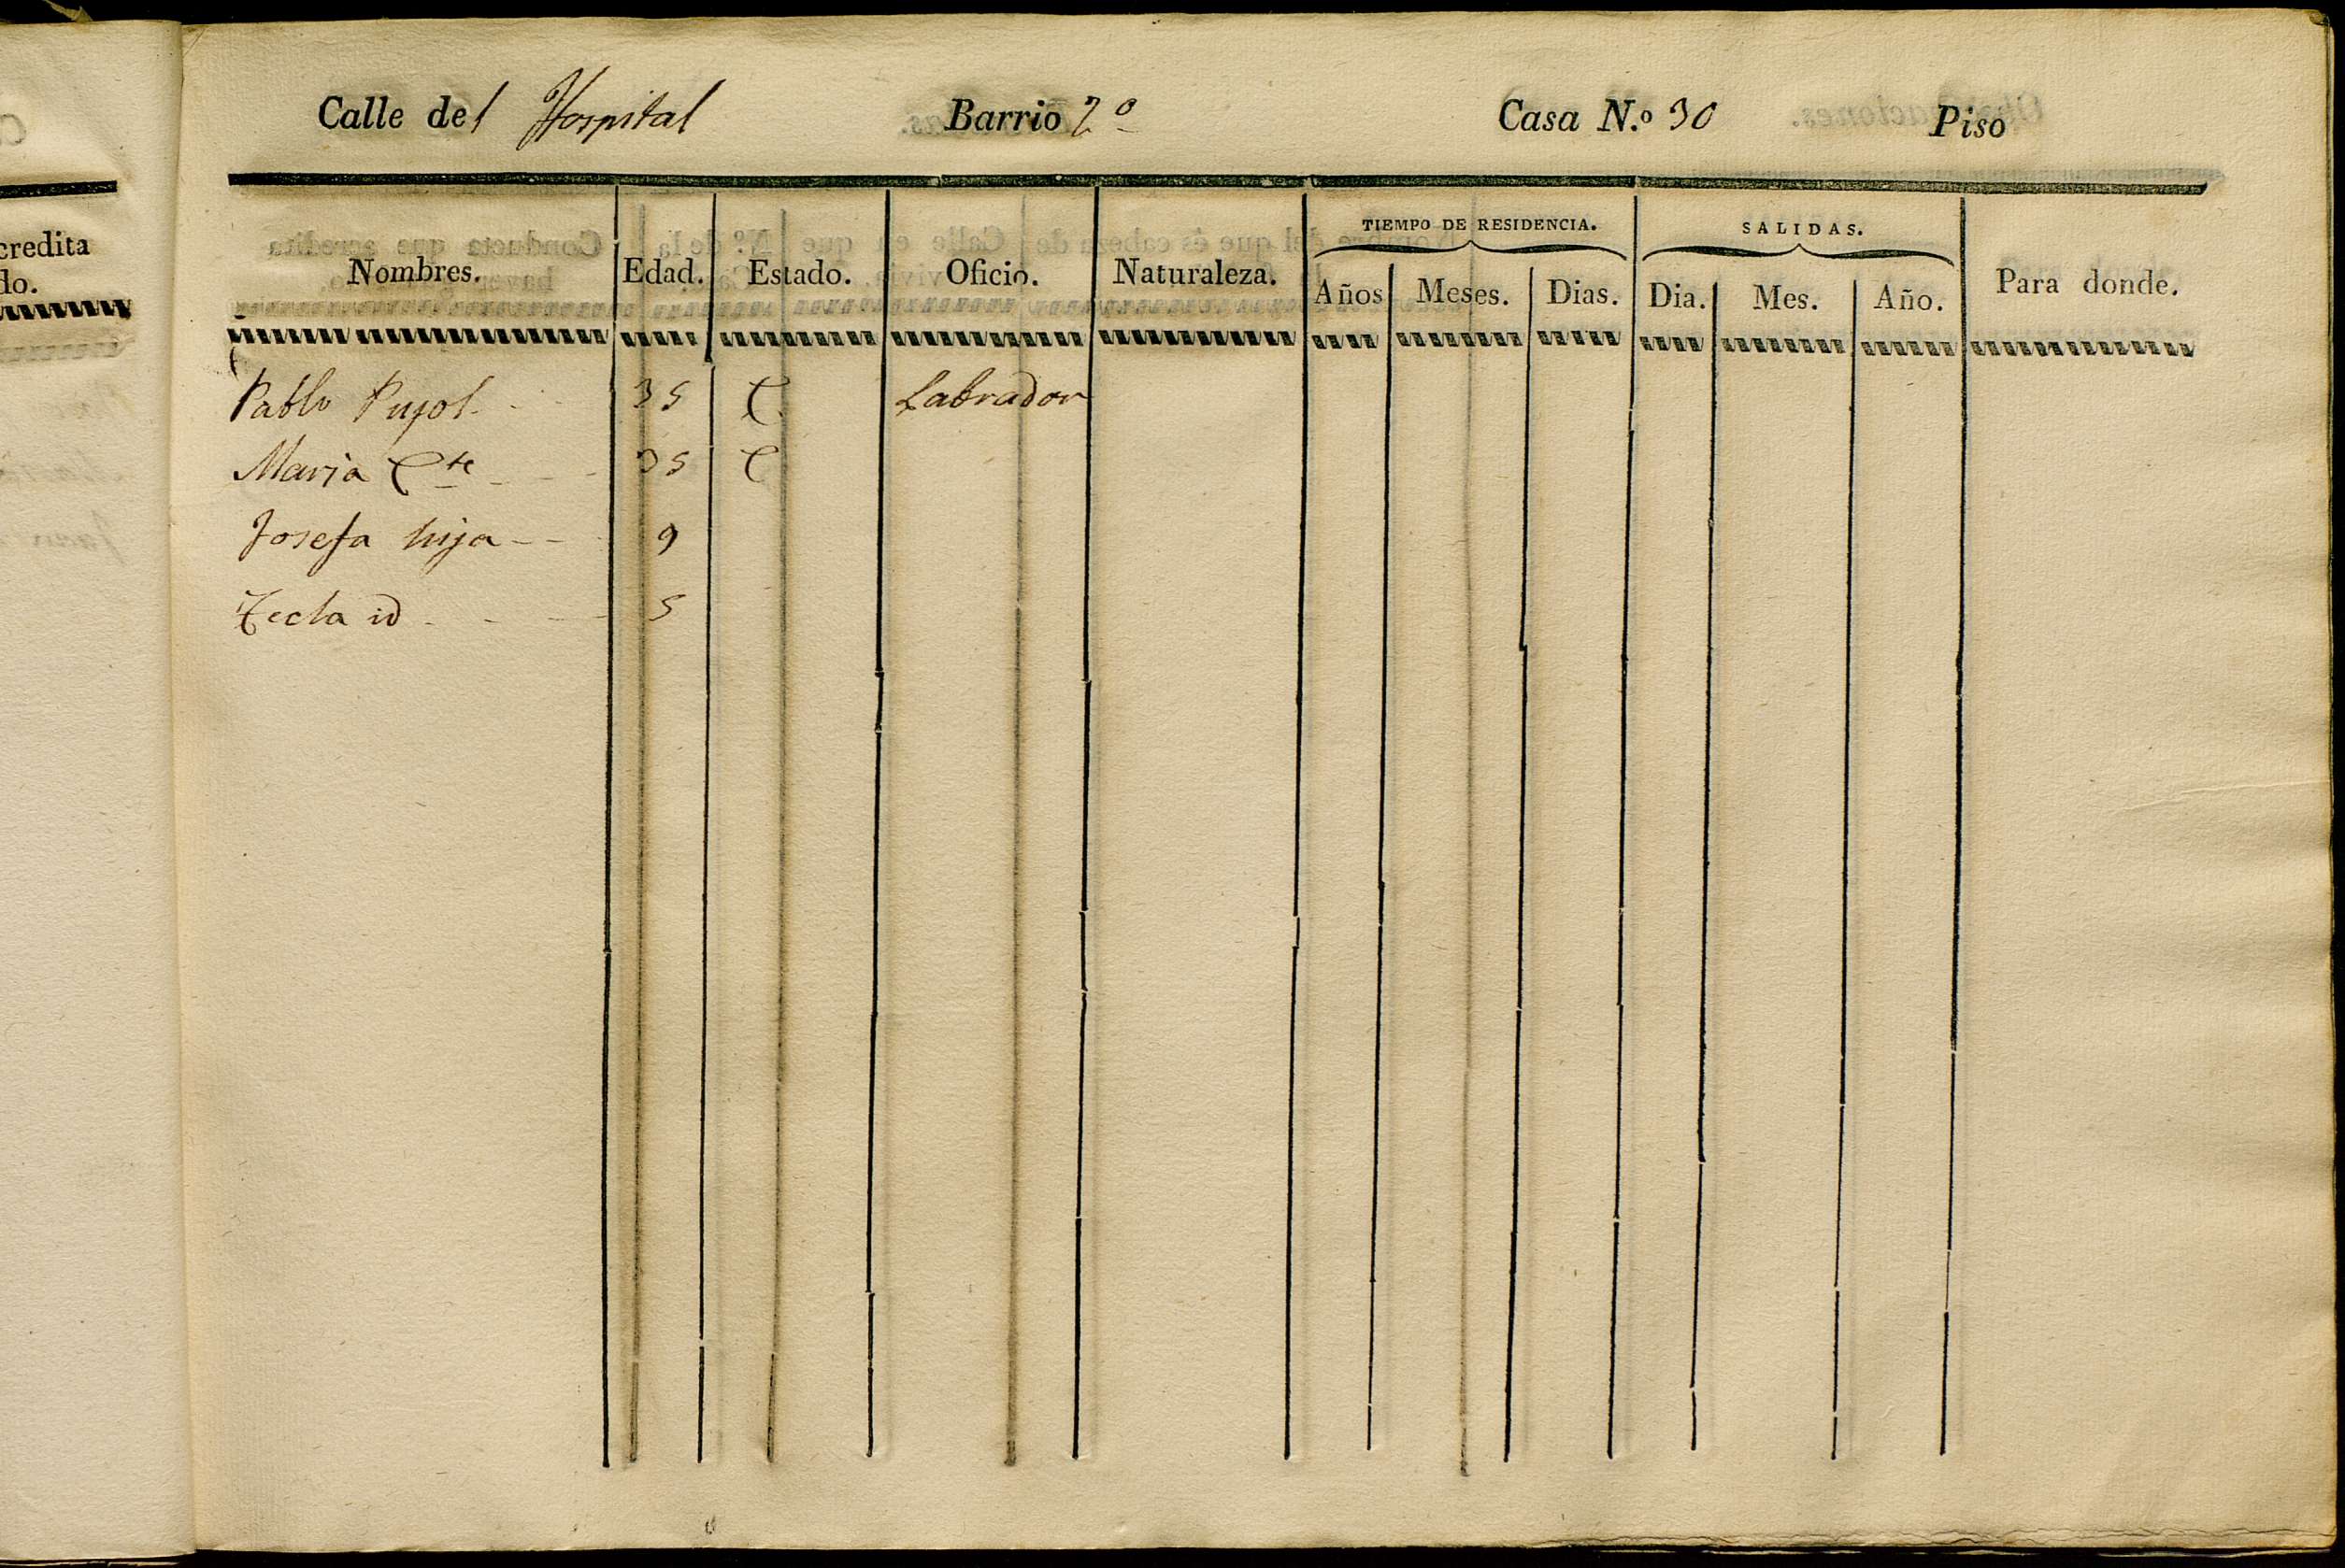 Calle del Hospital Barrio 2º Casa N.º 30 Piso
credita
do.
TIEMPO DE RESIDENCIA. SALIDAS.
Nombres. Edad. Estado. Oficio. Naturaleza. Años Meses. Dias. Dia. Mes. Año. Para donde.
Pablo Pujol 35 C. Labrador
Maria Cte 35 C
Josefa hija 9
Tecla id 5